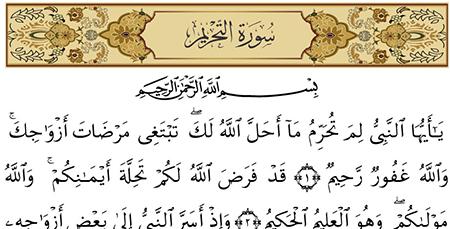 سُورَةُ التَّحْرِيمِ
بِسْمِ ٱللَّهِ ٱلرَّحْمَٰنِ ٱلرَّحِيمِ
يَٰٓأَيُّهَا ٱلنَّبِىُّ لِمَ تُحَرِّمُ مَآ أَحَلَّ ٱللَّهُ لَكَ ۖ تَبْتَغِى مَرْضَاتَ أَزْوَٰجِكَ ۚ
وَٱللَّهُ غَفُورٌ رَّحِيمٌ ﴿١﴾ قَدْ فَرَضَ ٱللَّهُ لَكُمْ تَحِلَّةَ أَيْمَٰنِكُمْ ۚ وَٱللَّهُ
مَوْلَىٰكُمْ ۖ وَهُوَ ٱلْعَلِيمُ ٱلْحَكِيمُ ﴿٢﴾ وَإِذْ أَسَرَّ ٱلنَّبِىُّ إِلَىٰ بَعْضِ أَزْوَٰجِهِۦ